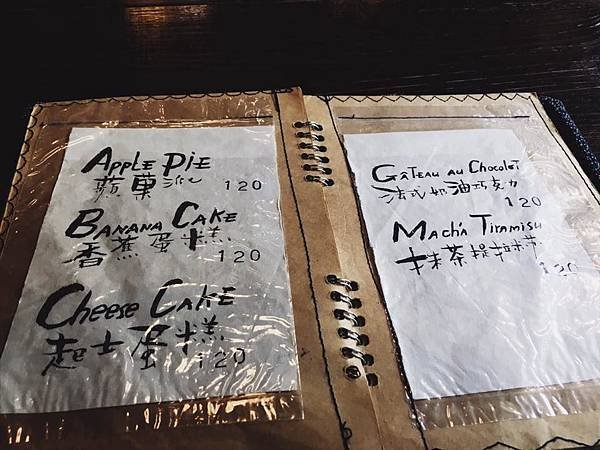 APPLE PIE
蘋菓派 120
BANANA CAKE
香蕉蛋糕 120
CHEESE CAKE
起士蛋糕 120
GÂTEAU AU CHOCOLET
法式奶油巧克力 120
MACHA TIRAMISU
抹茶提拉米蘇 120